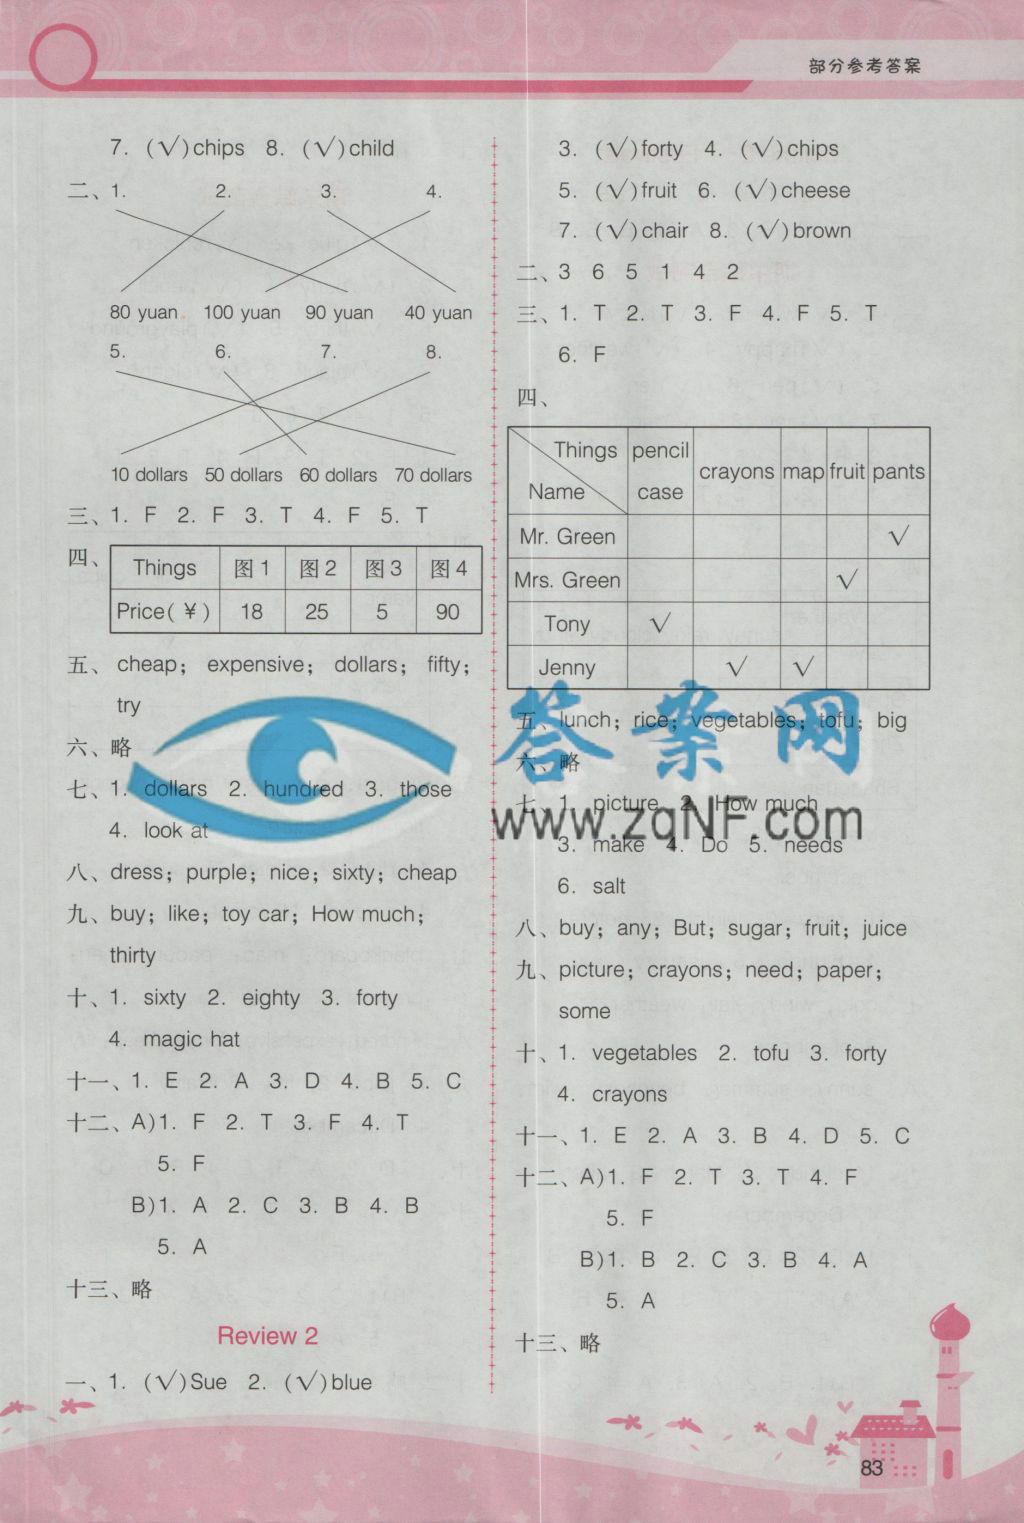 部分参考答案
7. (√)chips 8. (√)child
二、1. 2. 3. 4.
80 yuan 100 yuan 90 yuan 40 yuan
5. 6. 7. 8.
10 dollars 50 dollars 60 dollars 70 dollars
三、1. F 2. F 3. T 4. F 5. T
四、
Things 图1 图2 图3 图4
Price(¥) 18 25 5 90
五、cheap; expensive; dollars; fifty;
try
六、略
七、1. dollars 2. hundred 3. those
4. look at
八、dress; purple; nice; sixty; cheap
九、buy; like; toy car; How much;
thirty
十、1. sixty 2. eighty 3. forty
4. magic hat
十一、1. E 2. A 3. D 4. B 5. C
十二、A)1. F 2. T 3. F 4. T
5. F
B)1. A 2. C 3. B 4. B
5. A
十三、略
Review 2
一、1. (√)Sue 2. (√)blue
3. (√)forty 4. (√)chips
5. (√)fruit 6. (√)cheese
7. (√)chair 8. (√)brown
二、3 6 5 1 4 2
三、1. T 2. T 3. F 4. F 5. T
6. F
四、
Things pencil
crayons map fruit pants
Name case
Mr. Green √
Mrs. Green √
Tony √
Jenny √ √
五、lunch; rice; vegetables; tofu; big
六、略
七、1. picture 2. How much
3. make 4. Do 5. needs
6. salt
八、buy; any; But; sugar; fruit; juice
九、picture; crayons; need; paper;
some
十、1. vegetables 2. tofu 3. forty
4. crayons
十一、1. E 2. A 3. B 4. D 5. C
十二、A)1. F 2. T 3. T 4. F
5. F
B)1. B 2. C 3. B 4. A
5. A
十三、略
答案网
www.zqNF.com
83